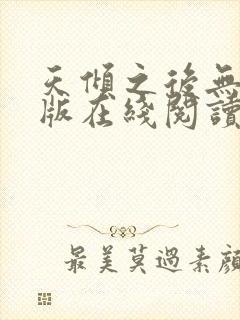 天傾之後無
版在綫閱讀
最美莫過素顏